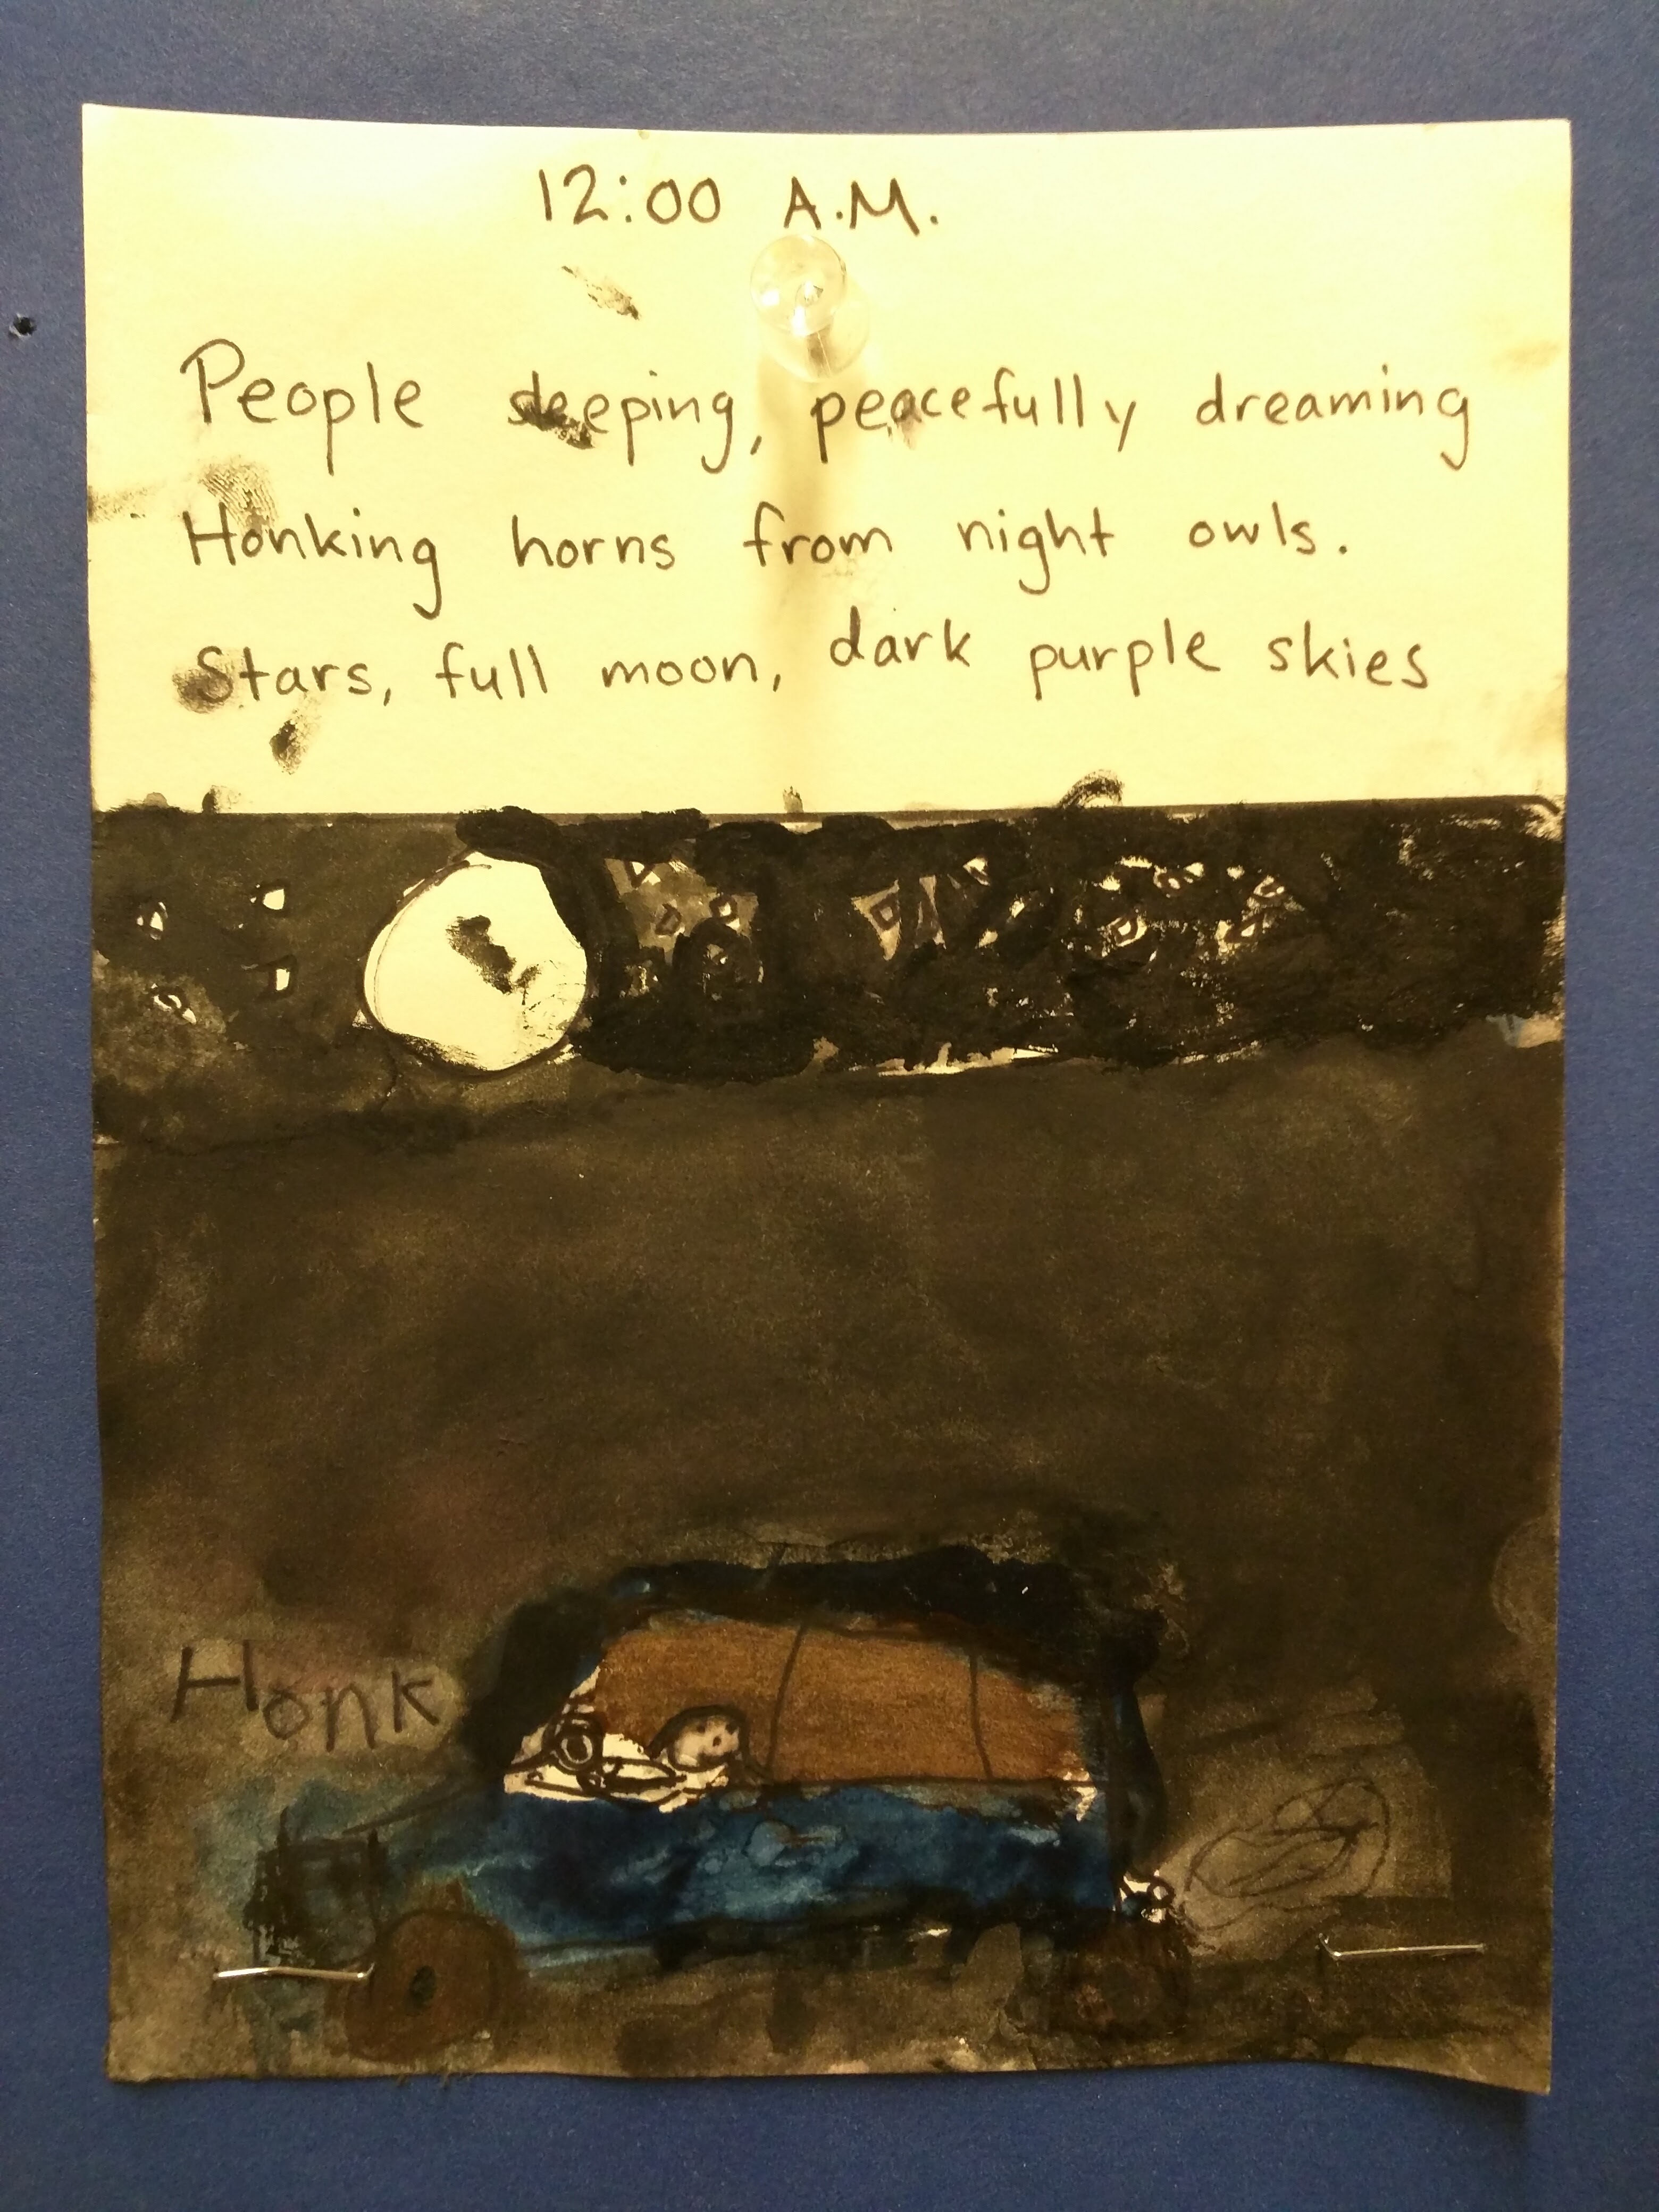 12:00 A.M.
People sleeping, peacefully dreaming
Honking horns from night owls.
Stars, full moon, dark purple skies
Honk